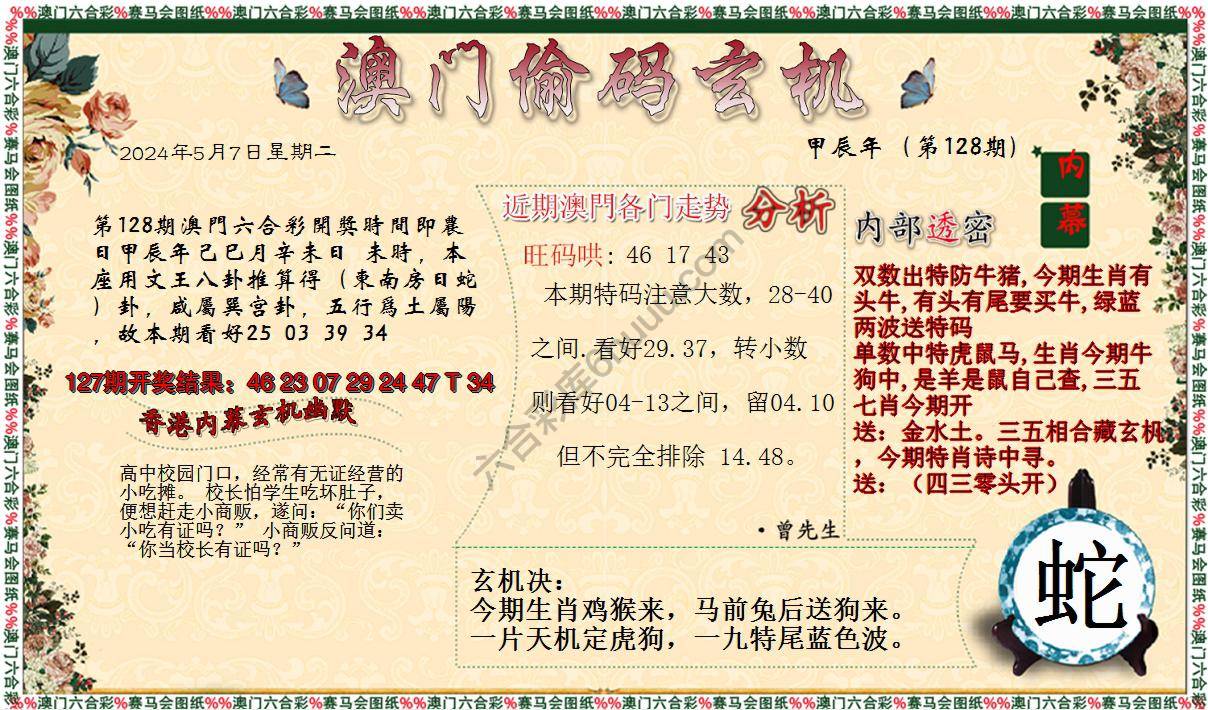 %%澳门六合彩%赛马会图纸%%澳门六合彩%赛马会图纸%%澳门六合彩%赛马会图纸%%澳门六合彩%赛马会图纸%%澳门六合彩%赛马会图纸%%澳门六合彩%赛马会图纸%%
澳门偷码玄机
2024年5月7日星期二
甲辰年（第128期）
内
幕
第128期澳門六合彩開獎時間即農
日甲辰年己巳月辛未日 未時，本
座用文王八卦推算得（東南房日蛇
）卦，咸屬巽宫卦，五行爲土屬陽
，故本期看好25 03 39 34
127期开奖结果：46 23 07 29 24 47 T 34
香港内幕玄机幽默
高中校园门口，经常有无证经营的
小吃摊。 校长怕学生吃坏肚子，
便想赶走小商贩，遂问：“你们卖
小吃有证吗？” 小商贩反问道：
“你当校长有证吗？”
近期澳門各门走势 分析
旺码哄：46 17 43
本期特码注意大数，28-40
之间.看好29.37，转小数
则看好04-13之间，留04.10
但不完全排除 14.48。
·曾先生
内部透密
双数出特防牛猪,今期生肖有
头牛,有头有尾要买牛,绿蓝
两波送特码
单数中特虎鼠马,生肖今期牛
狗中,是羊是鼠自己查,三五
七肖今期开
送：金水土。三五相合藏玄机
，今期特肖诗中寻。
送：（四三零头开）
玄机决：
今期生肖鸡猴来，马前兔后送狗来。
一片天机定虎狗，一九特尾蓝色波。
蛇
%%澳门六合彩%赛马会图纸%%澳门六合彩%赛马会图纸%%澳门六合彩%赛马会图纸%%澳门六合彩%赛马会图纸%%澳门六合彩%赛马会图纸%%澳门六合彩%赛马会图纸%%